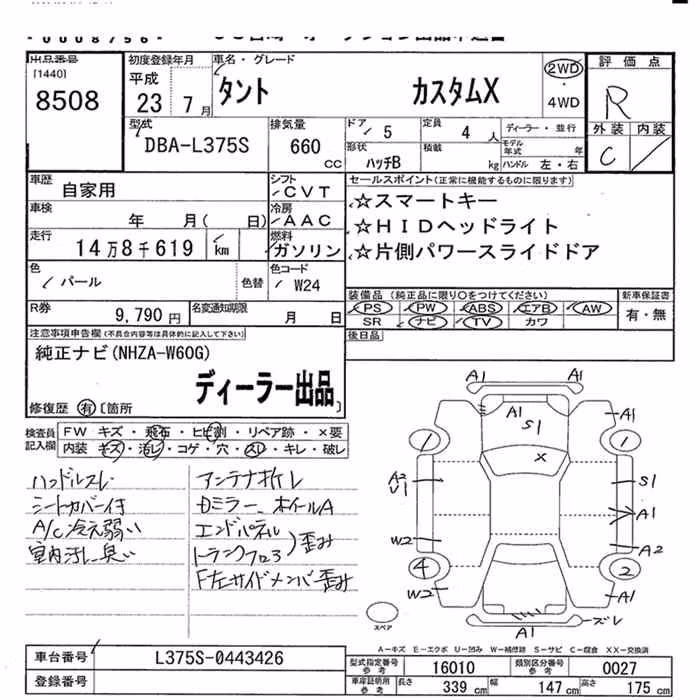 出品番号
[1440]
8508
初度登録年月
平成
23 7月
車名・グレード
タント カスタムX
2WD
・
4WD
評価点
R
外装 内装
C
型式
DBA-L375S
排気量
660 cc
ドア 5
定員 4 人
ディーラー・並行
形状 ハッチB
積載 kg
モデル年式 年
ハンドル 左・右
車歴 自家用
シフト CVT
車検 年 月( 日)
冷房 AAC
走行 14万8千619 km
燃料 ガソリン
色 パール
色替
色コード W24
R券 9,790円
名変通知期限 月 日
セールスポイント(正常に機能するものに限ります)
☆スマートキー
☆HIDヘッドライト
☆片側パワースライドドア
装備品(純正品に限り○をつけてください)
新車保証書
PS PW ABS エアB AW
SR ナビ TV カワ
有・無
後日品
注意事項申告欄(不具合内容等は具体的に記入して下さい)
純正ナビ(NHZA-W60G)
ディーラー出品
修復歴 有 〔箇所 〕
検査員記入欄
FW キズ・飛石・ヒビ割・リペア跡・×要
内装 キズ・汚レ・コゲ・穴・スレ・キレ・破レ
ハンドルスレ
シートカバー付
A/C冷え弱い
室内汚レ臭い
アンテナ折レ
ミラー、ホイールA
エンドパネル
トランクフロア)歪み
F左サイドメンバ歪み
A1 A1
A1 A1
S1
X
A2
U1
S1
A1
W2 A2
4 2
W2 A1
ズレ
A1
スペア
A-キズ E-エクボ U-凹み W-補修跡 S-サビ C-腐食 XX-交換済
車台番号 L375S-0443426
登録番号
型式指定番号 参考 16010
類別区分番号 参考 0027
車庫証明用 参考 長さ 339 cm 幅 147 cm 高さ 175 cm